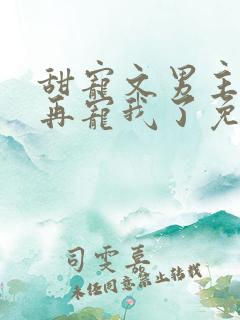 甜寵文男主
再寵我了免
司雯慕
未经同意禁止转载